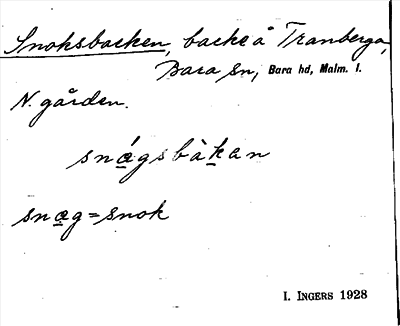 Snoksbacken, backe å Tranberga,
Bara sn, Bara hd, Malm. l.
N. gården.
snǽgsbàkan
snæg=snok
I. INGERS 1928